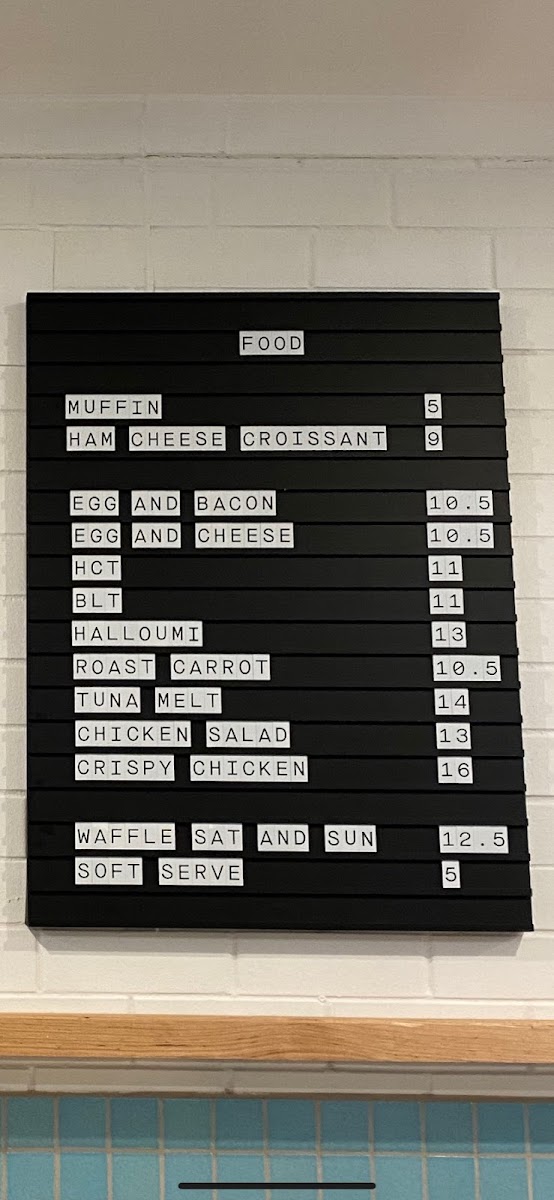 FOOD
MUFFIN 5
HAM CHEESE CROISSANT 9
EGG AND BACON 10.5
EGG AND CHEESE 10.5
HCT 11
BLT 11
HALLOUMI 13
ROAST CARROT 10.5
TUNA MELT 14
CHICKEN SALAD 13
CRISPY CHICKEN 16
WAFFLE SAT AND SUN 12.5
SOFT SERVE 5